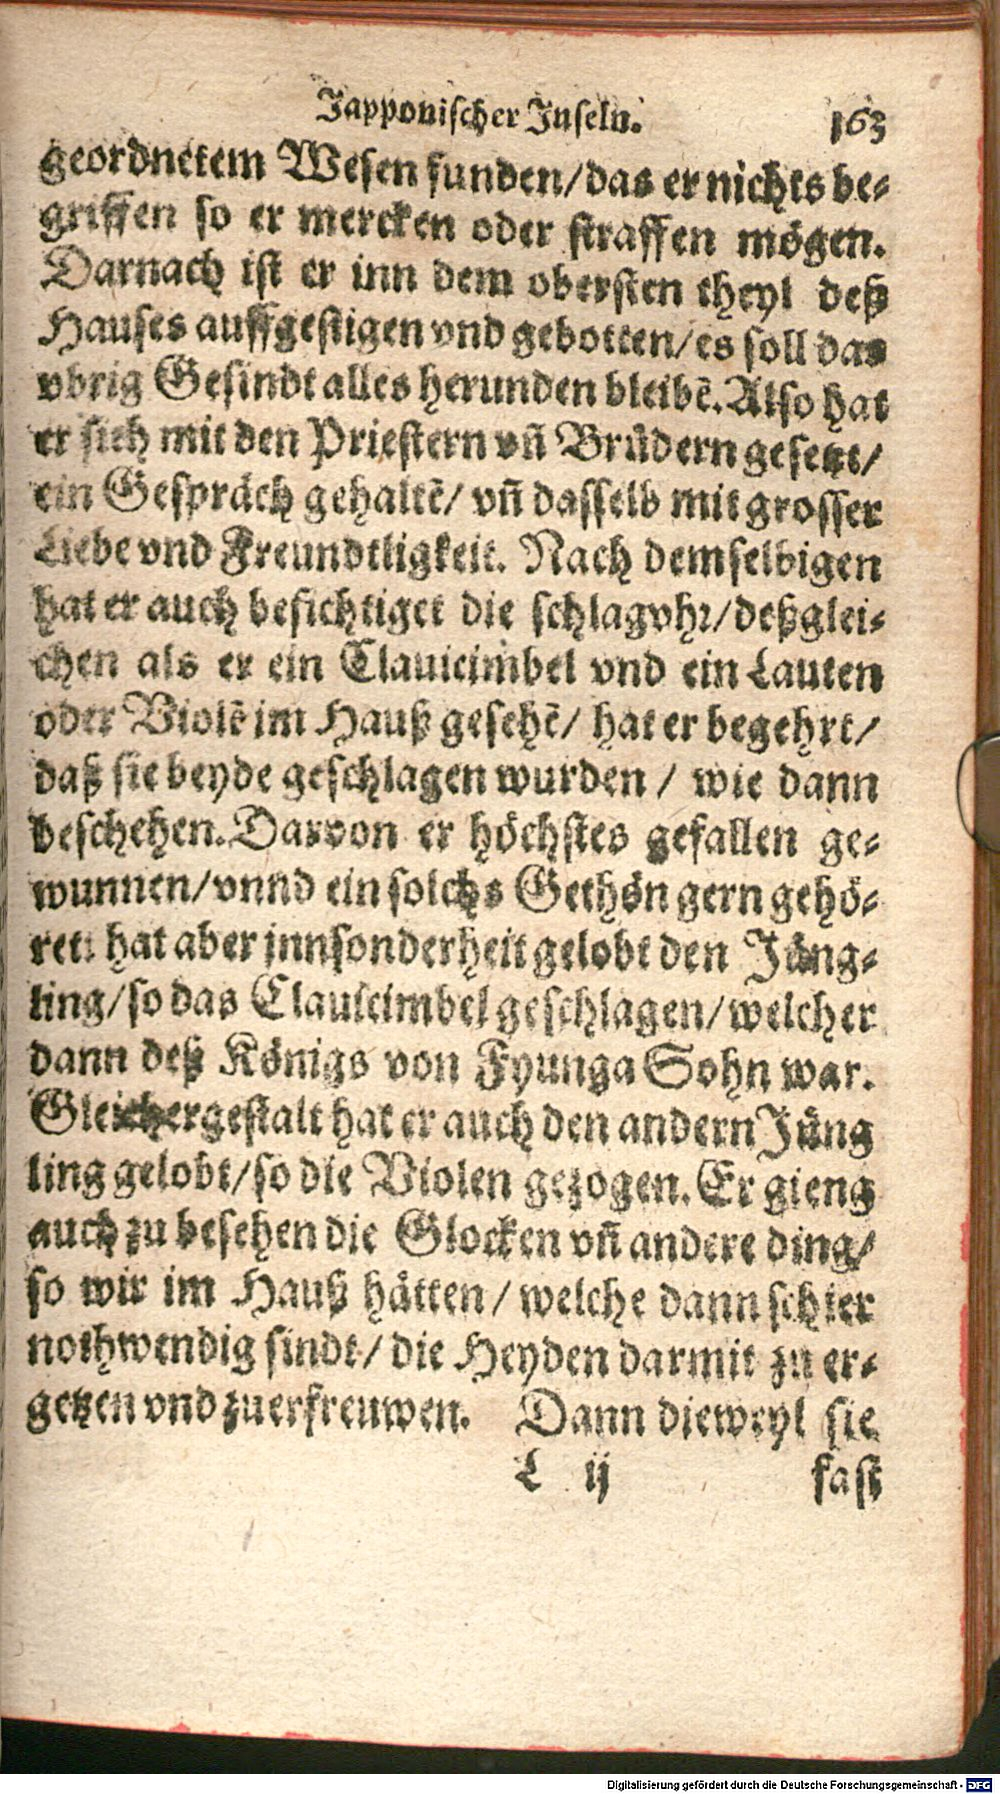 Japponischer Inseln. 163
geordnetem Wesen funden/das er nichts be-
griffen so er mercken oder straffen mögen.
Darnach ist er inn dem obersten theyl deß
Hauses auffgestigen vnd gebotten/es soll das
vbrig Gesindt alles herunden bleibē. Also hat
er sich mit den Priestern vñ Brüdern gesetzt/
ein Gespräch gehaltē/ vñ dasselb mit grosser
Liebe vnd Freundtligkeit. Nach demselbigen
hat er auch besichtiget die schlagvhr/deßglei-
chen als er ein Clauicimbel vnd ein Lauten
oder Violē im Hauß gesehē/ hat er begehrt/
daß sie beyde geschlagen wurden / wie dann
beschehen. Darvon er höchstes gefallen ge-
wunnen/vnnd ein solchs Gethön gern gehö-
ret: hat aber jnnsonderheit gelobt den Jüng-
ling/so das Clauicimbel geschlagen/welcher
dann deß Königs von Fyunga Sohn war.
Gleichergestalt hat er auch den andern Jüng
ling gelobt/so die Violen gezogen. Er gieng
auch zu besehen die Glocken vñ andere ding/
so wir im Hauß hätten/ welche dann schier
nothwendig sindt/ die Heyden darmit zu er-
getzen vnd zuerfreuwen. Dann dieweyl sie
L ij fast
Digitalisierung gefördert durch die Deutsche Forschungsgemeinschaft - DFG